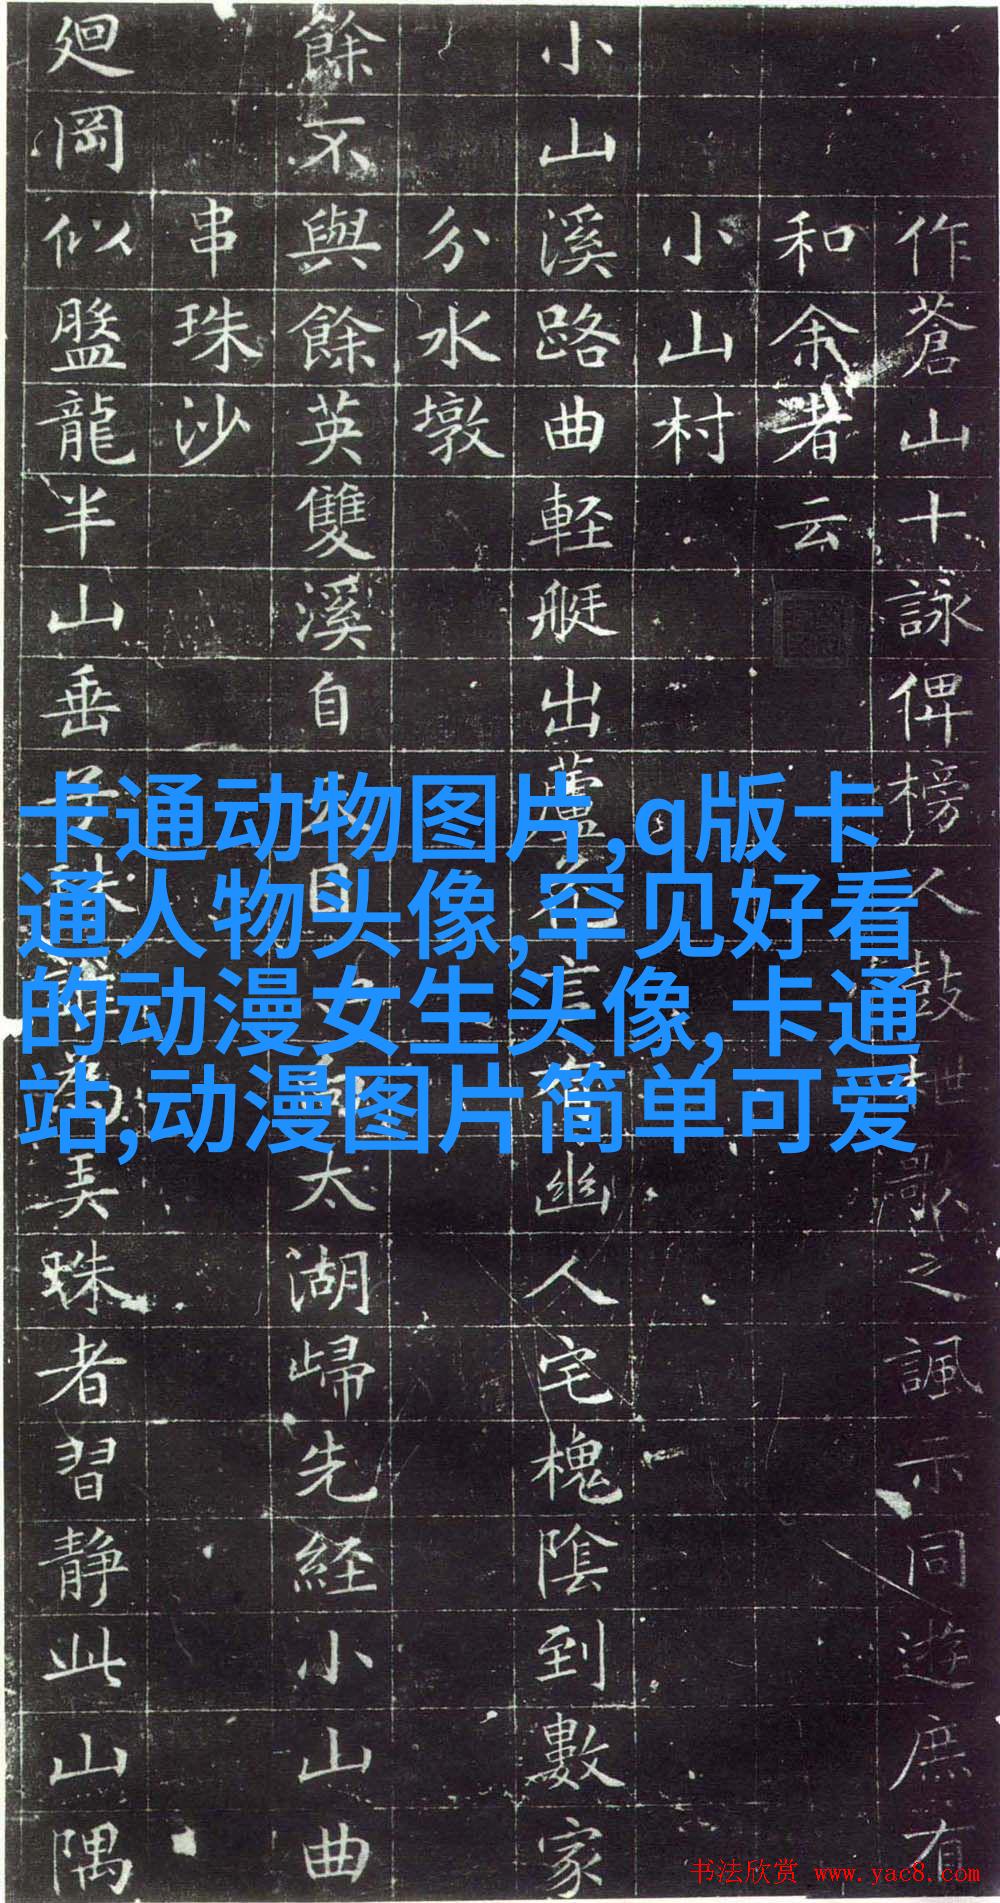 作蒼山十詠俾榜人鼓枻歌之諷示同遊庶有
和余者云
小山村
小山溪路曲輕艇出蘆
幽人宅槐陰到數家
分水墩
餘不與餘英雙溪自
太湖歸先経小山曲
串珠沙
廻岡似盤龍半山垂
美珠者習静此山隅
卡通动物图片,q版卡
通人物头像,罕见好看
的动漫女生头像,卡通
站,动漫图片简单可爱
书法欣赏 www.yac8.com